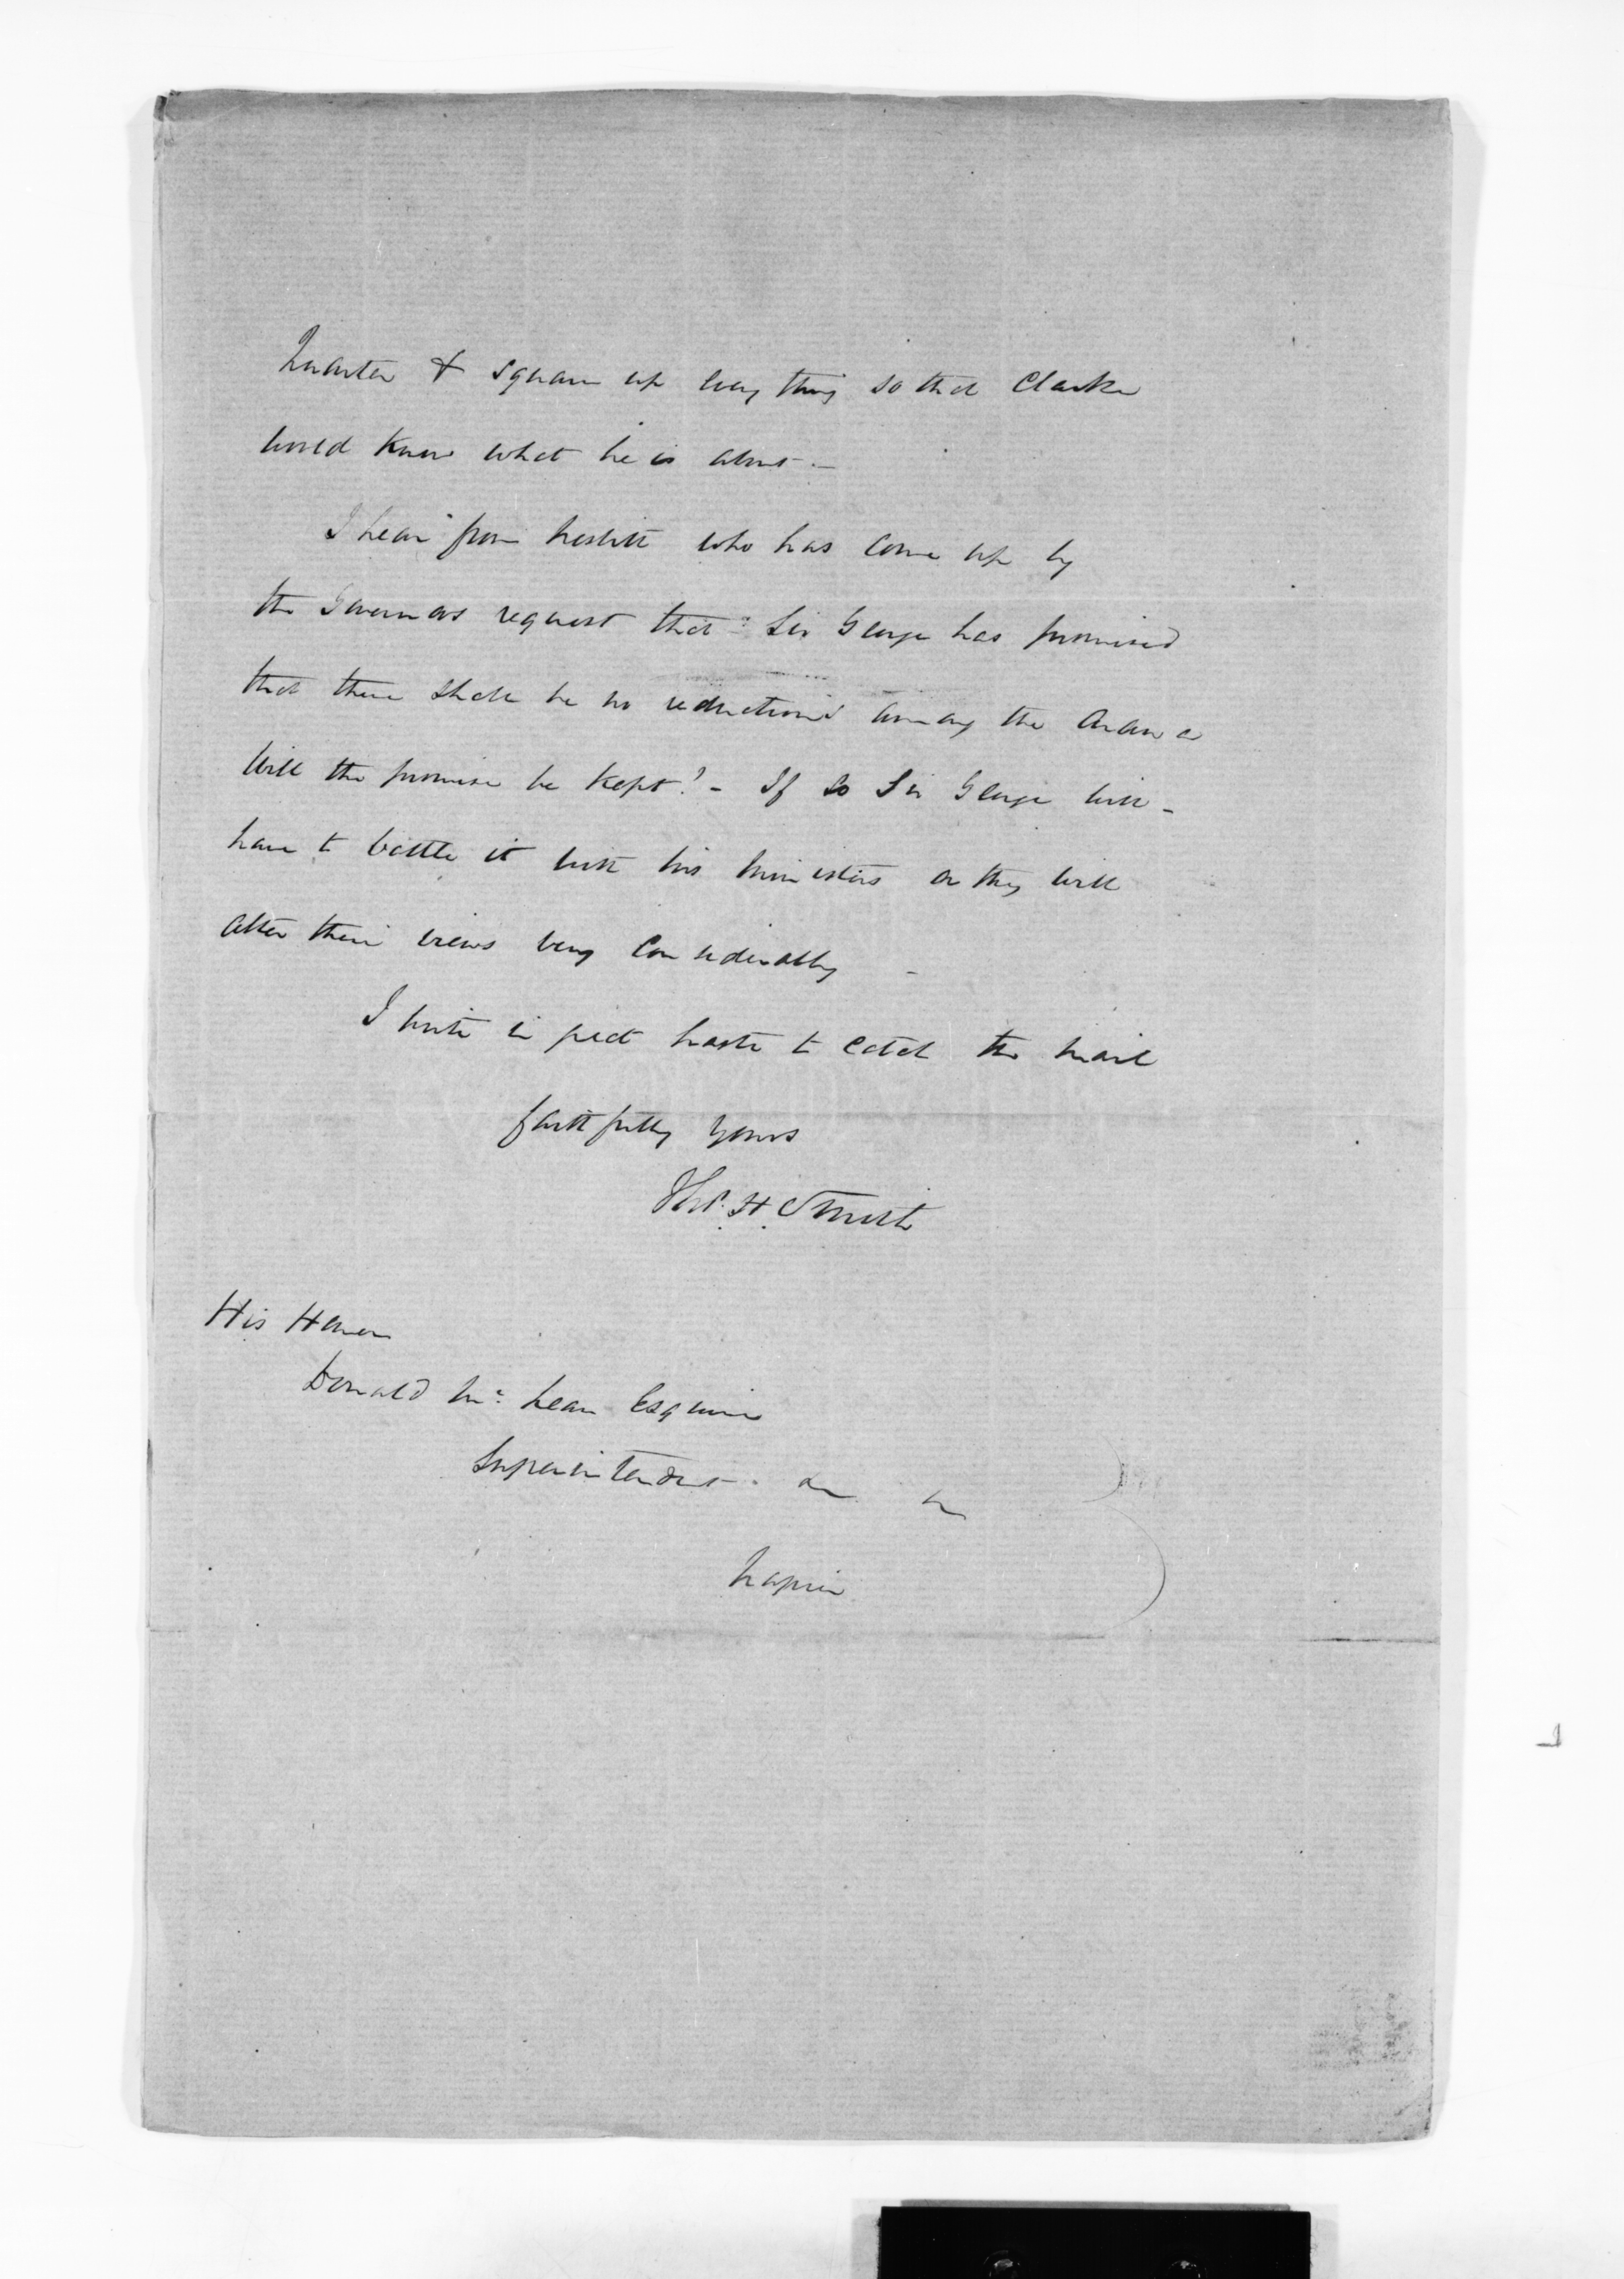 Quarter & square up every thing so that Clarke
would know what he is about -
I hear from Nesbitt who has come up by
the Governors request that Sir George has promised
that there shall be no reductions among the Arawa
Will the promise be kept? - If so Sir George will -
have to battle it with his Ministers or they will
alter their views very considerably -
I write in great haste to catch the mail
faithfully yours
Thos. H. Smith
His Honor
Donald McLean Esquire
Superintendent
Napier